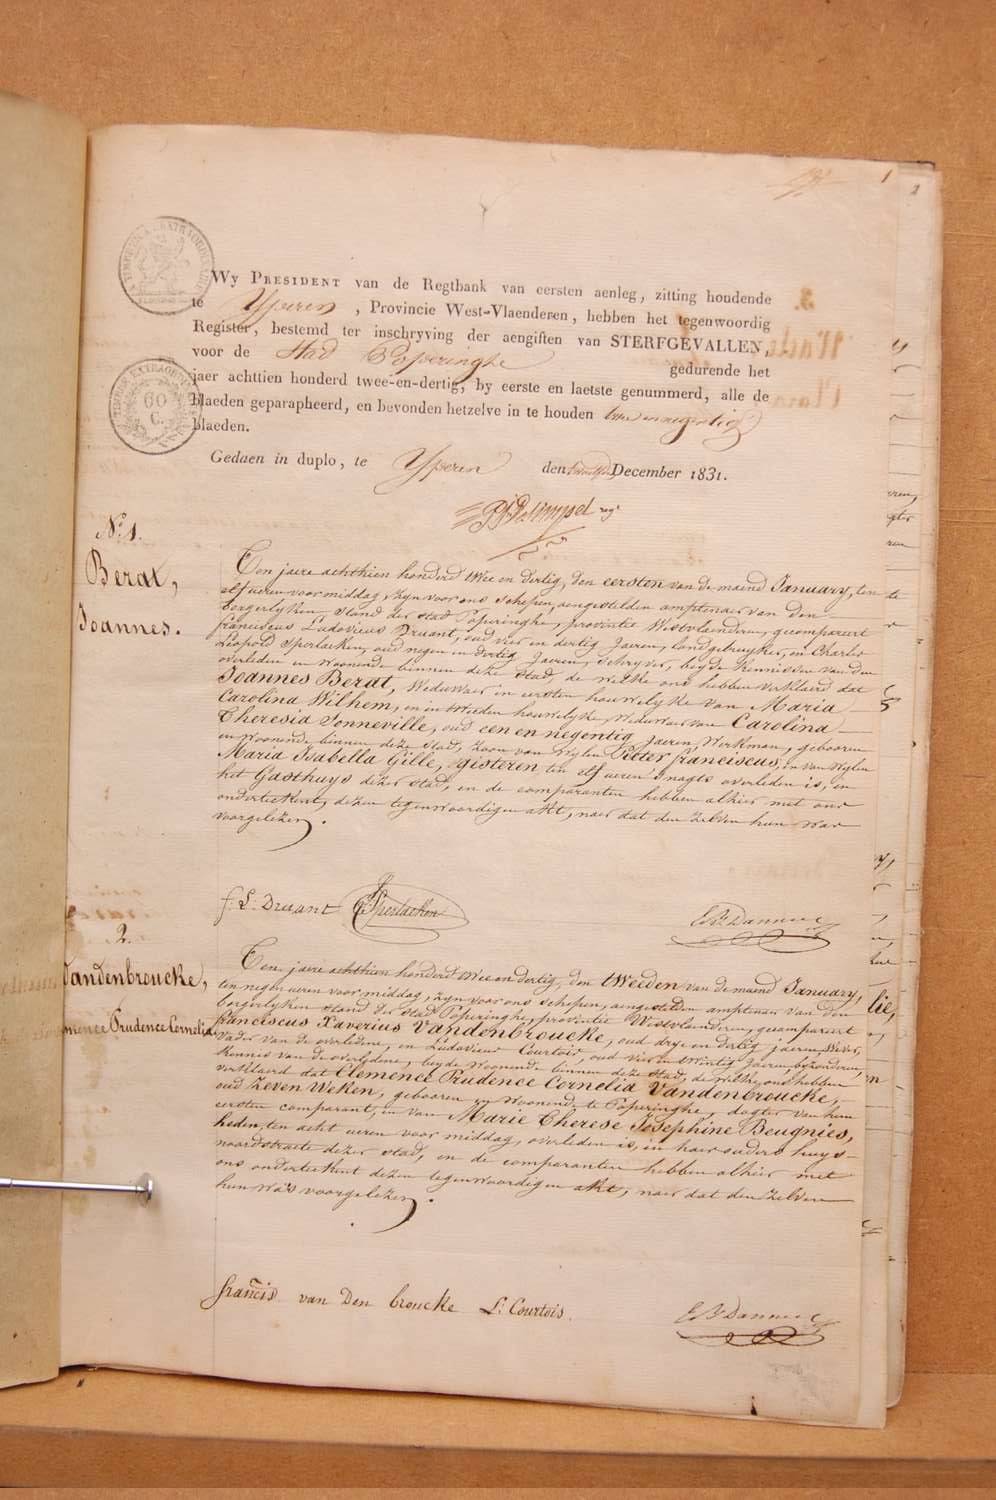 1
2
Wy PRESIDENT van de Regtbank van eersten aenleg, zitting houdende
te Yperen, Provincie West-Vlaenderen, hebben het tegenwoordig
Register, bestemd ter inschryving der aengiften van STERFGEVALLEN,
voor de Stad Poperinghe gedurende het
jaer achttien honderd twee-en-dertig, by eerste en laetste genummerd, alle de
blaeden geparapheerd, en bevonden hetzelve in te houden twee en negentig
blaeden.
60
C.
Gedaen in duplo, te Yperen den twaelfden December 1831.
N.º 1.
Berat,
Joannes.
Ten jaere achthien honderd twee en dertig, den eersten van de maend January, ten
elf ueren voor middag, zyn voor ons schepen, aengestelden amptenaer van den
borgerlyken stand der stad Poperinghe, provintie Westvlaenderen, gecompareert
franciscus Ludovicus Druant, oud vier en dertig Jaeren, landgebruyker, en Charles
Leopold Sperlaeken, oud negen en dertig Jaeren, schryver, beyde kennissen van den
overleden en woonende binnen deze stad, de welke ons hebben verklaerd dat
Joannes Berat, Weduwaer in eersten houwelyke van Maria
Carolina Wilhem, en in tweeden houwelyke, weduwaer van Carolina
Theresia Sonneville, oud een en negentig Jaeren, Werkman, gebooren
en woonende binnen deze stad, zoon van wylen Pieter franciscus, en van Wylen
Maria Isabella Gille, gisteren ten elf ueren s'nagts overleden is, in
het Gasthuys dezer stad, en de comparanten hebben alhier met ons
onderteekent, dezen tegenwoordigen akt, naer dat den zelven hun was
voorgelezen.
f: L: Druant Sperlaeken
2.
Vandenbroucke,
Clemence Prudence Cornelia
Ten jaere achthien honderd twee en dertig, den tweeden van de maend January,
ten negen ueren voor middag, zyn voor ons schepen, aengestelden amptenaer van den
borgerlyken stand der stad Poperinghe, provintie Westvlaenderen, gecompareert
franciscus Xaverius Vandenbroucke, oud dry en dertig jaeren, Wever,
vader van de overledene, en Ludovicus Courtois, oud vier en twintig Jaeren, bezonderen,
kennis van de overledene, beyde woonende binnen deze stad, de welke ons hebben
verklaerd dat Clemence Prudence Cornelia Vandenbroucke,
oud zeven Weken, gebooren en woonende te Poperinghe, dogter van hun
eersten comparant, en van Marie Therese Josephine Beugnies,
heden, ten acht ueren voor middag, overleden is, in haer ouders huys
noordstraete dezer stad, en de comparanten hebben alhier met
ons onderteekent dezen tegenwoordigen akt, naer dat den zelven
hun was voorgelezen.
francis van Den broucke L: Courtois